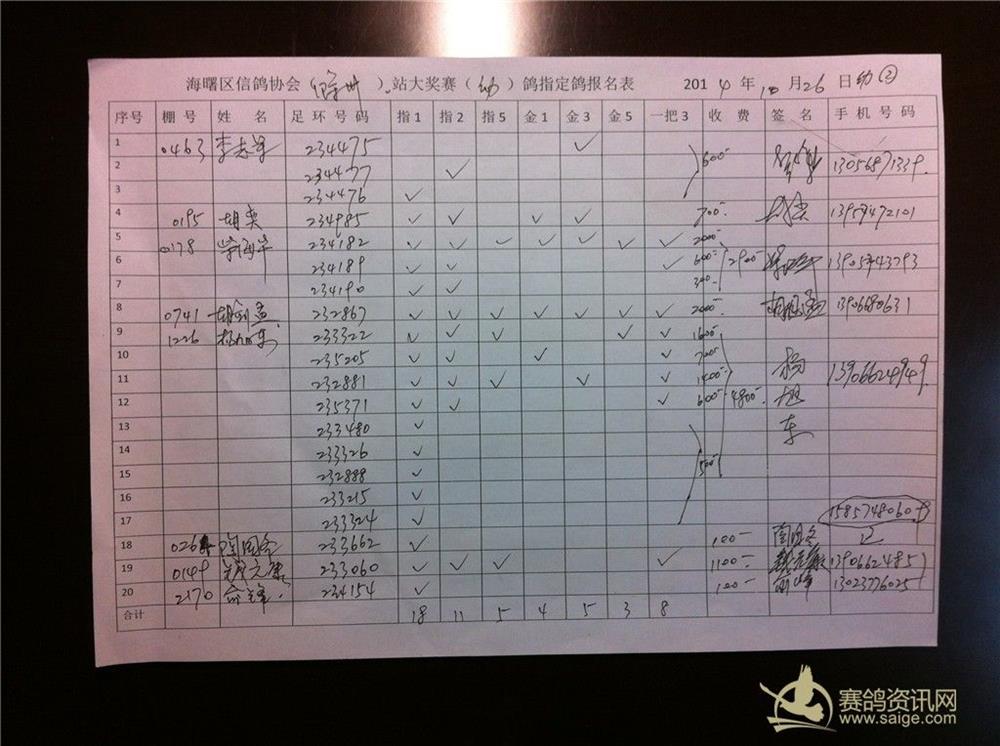 海曙区信鸽协会（徐州）站大奖赛（幼）鸽指定鸽报名表 2014年10月26日幼②
序号 棚号 姓名 足环号码 指1 指2 指5 金1 金3 金5 一把3 收费 签名 手机号码
1 0463 李志 234475 ✓
2 234477 ✓ 600- 13056871339
3 234476 ✓
4 0195 胡奕 234985 ✓ ✓ ✓ ✓ 700- 13957472101
5 0178 234182 ✓ ✓ ✓ ✓ ✓ ✓ ✓ 2000-
6 234189 ✓ ✓ ✓ 600- 2900- 13905743293
7 234190 ✓ ✓ 300-
8 0741 胡 232867 ✓ ✓ ✓ ✓ ✓ ✓ ✓ 2000- 1390680631
9 1226 杨旭东 233322 ✓ ✓ ✓ ✓ ✓ 1600-
10 235205 ✓ ✓ ✓ ✓ 700-
11 232881 ✓ ✓ ✓ ✓ ✓ 1400- 杨 13906624949
12 235371 ✓ ✓ ✓ 600- 4800- 旭
13 233480 ✓ 东
14 233326 ✓
15 232888 ✓ 500-
16 233215 ✓
17 233324 ✓ 15857480609
18 026 陶国 233662 ✓ 100- 陶国
19 0149 233060 ✓ ✓ ✓ ✓ 1100- 13906624857
20 2170 俞锋 234154 ✓ 100- 俞峰 13023776025
合计 18 11 5 4 5 3 8
赛鸽资讯网
www.saige.com